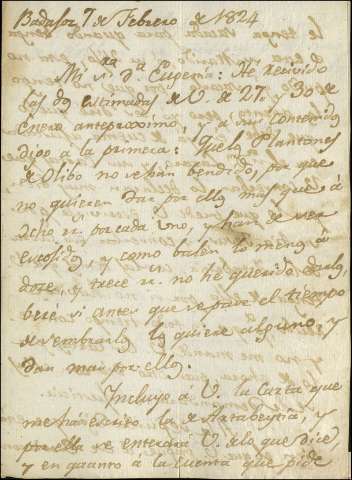 Badajoz 7 de Febrero de 1824
Mi Sra Da Eugenia: He recivido
las dos estimadas de V. de 27. y 30 de
Enero antepróximo, y a su contenido
digo à la primera: Que los Plantones
de Olibo no se han bendido, por que
no quieren dar por ellos mas que à
ocho rr. por cada uno, y han de ser
escosidos, y como balen lo menos à
doze, y trece rr. no he querido darlos,
beré si antes que se pase el tiempo
de sembrarlos los quiere alguno, y
dan mas por ellos.
Incluyo à V. la Carta que
me ha escrito la de Artabeytia, y
por ella se enterará V. de lo que dice,
y en quanto à la Cuenta que pide